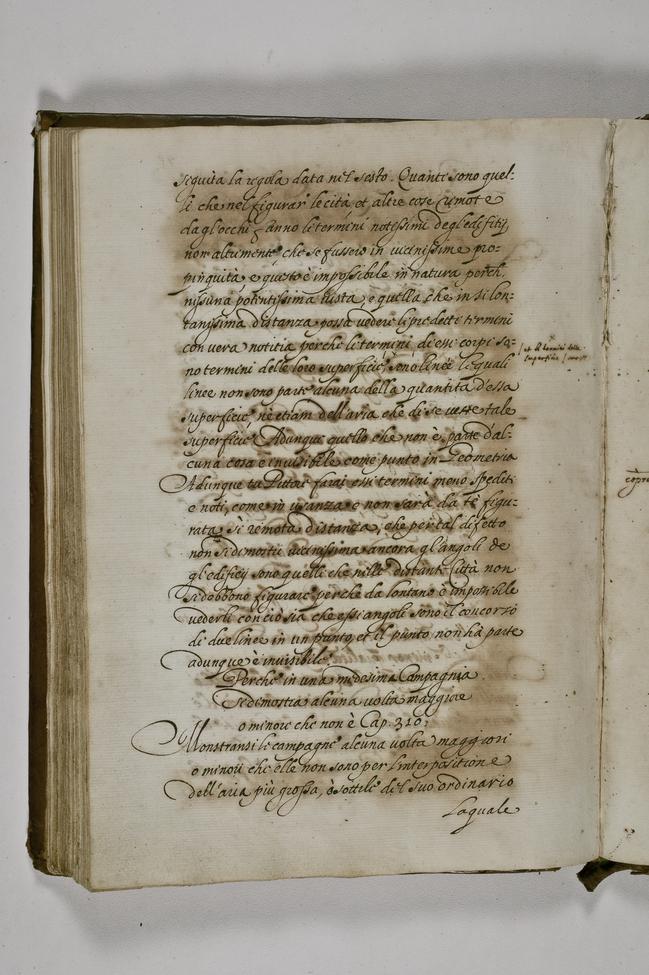 seguita la regola data nel sesto. Quanti sono quel-
li che nel figurar le cità, et altre cose rimote
da gl'occhi fanno li termini notissimi degl'edifitij
non altrimente, che se fussero in vicinissime pro-
pinquità, e questo è impossibile in natura perch,
nissuna potentissima uista, e quella che in si lon-
tanissima distanza possa vedere li predetti termini
con vera notitia perche li termini di essi corpi so-
no termini delle loro superficie, e sono linee le quali
linee non sono parte alcuna della quantità d'essa
superficie, ne etiam dell'aria che di se veste tale
superficie. Adunque quello che non è parte d'al-
cuna cosa e inuisibile come punto in Geometria
Adunque tu Pittor farai essi termini meno spediti
e noti, come in usanza, e non sarà da tè figu-
rata si remota distanza, che per tal difetto
non si dimostri uicinissima, ancora gl'angoli de
gl'edifitij sono quelli che nelle distanti Città non
si dobbono figurare perche da lontano è impossibile
vederli con ciò sia che essi angoli sono il concorso
di due linee in un punto, et il punto non hà parte
adunque è inuisibile.
Perche in una medesima Campagnia
Si dimostra alcuna volta maggiore
o minore che non è Cap. 310.
Monstransi le campagne alcuna volta maggiori
o minori che elle non sono per l'interpositione
dell'aria più grossa, ò sottile del suo ordinario
Laquale